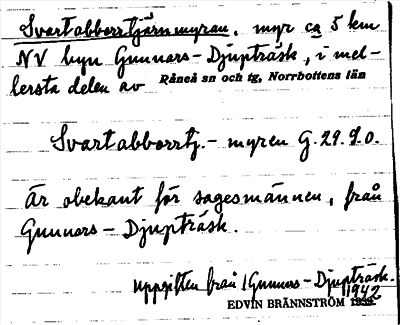 Svartabborrtjärnmyran, myr ca 5 km
NV byn Gunnars-Djupträsk, i mel-
lersta delen av Råneå sn och tg, Norrbottens län
Svartabborrtj.-myren G.29.9.0.
Är obekant för sagesmännen, från
Gunnars-Djupträsk.
Uppgiften från Gunnars-Djupträsk.
1942
EDVIN BRÄNNSTRÖM